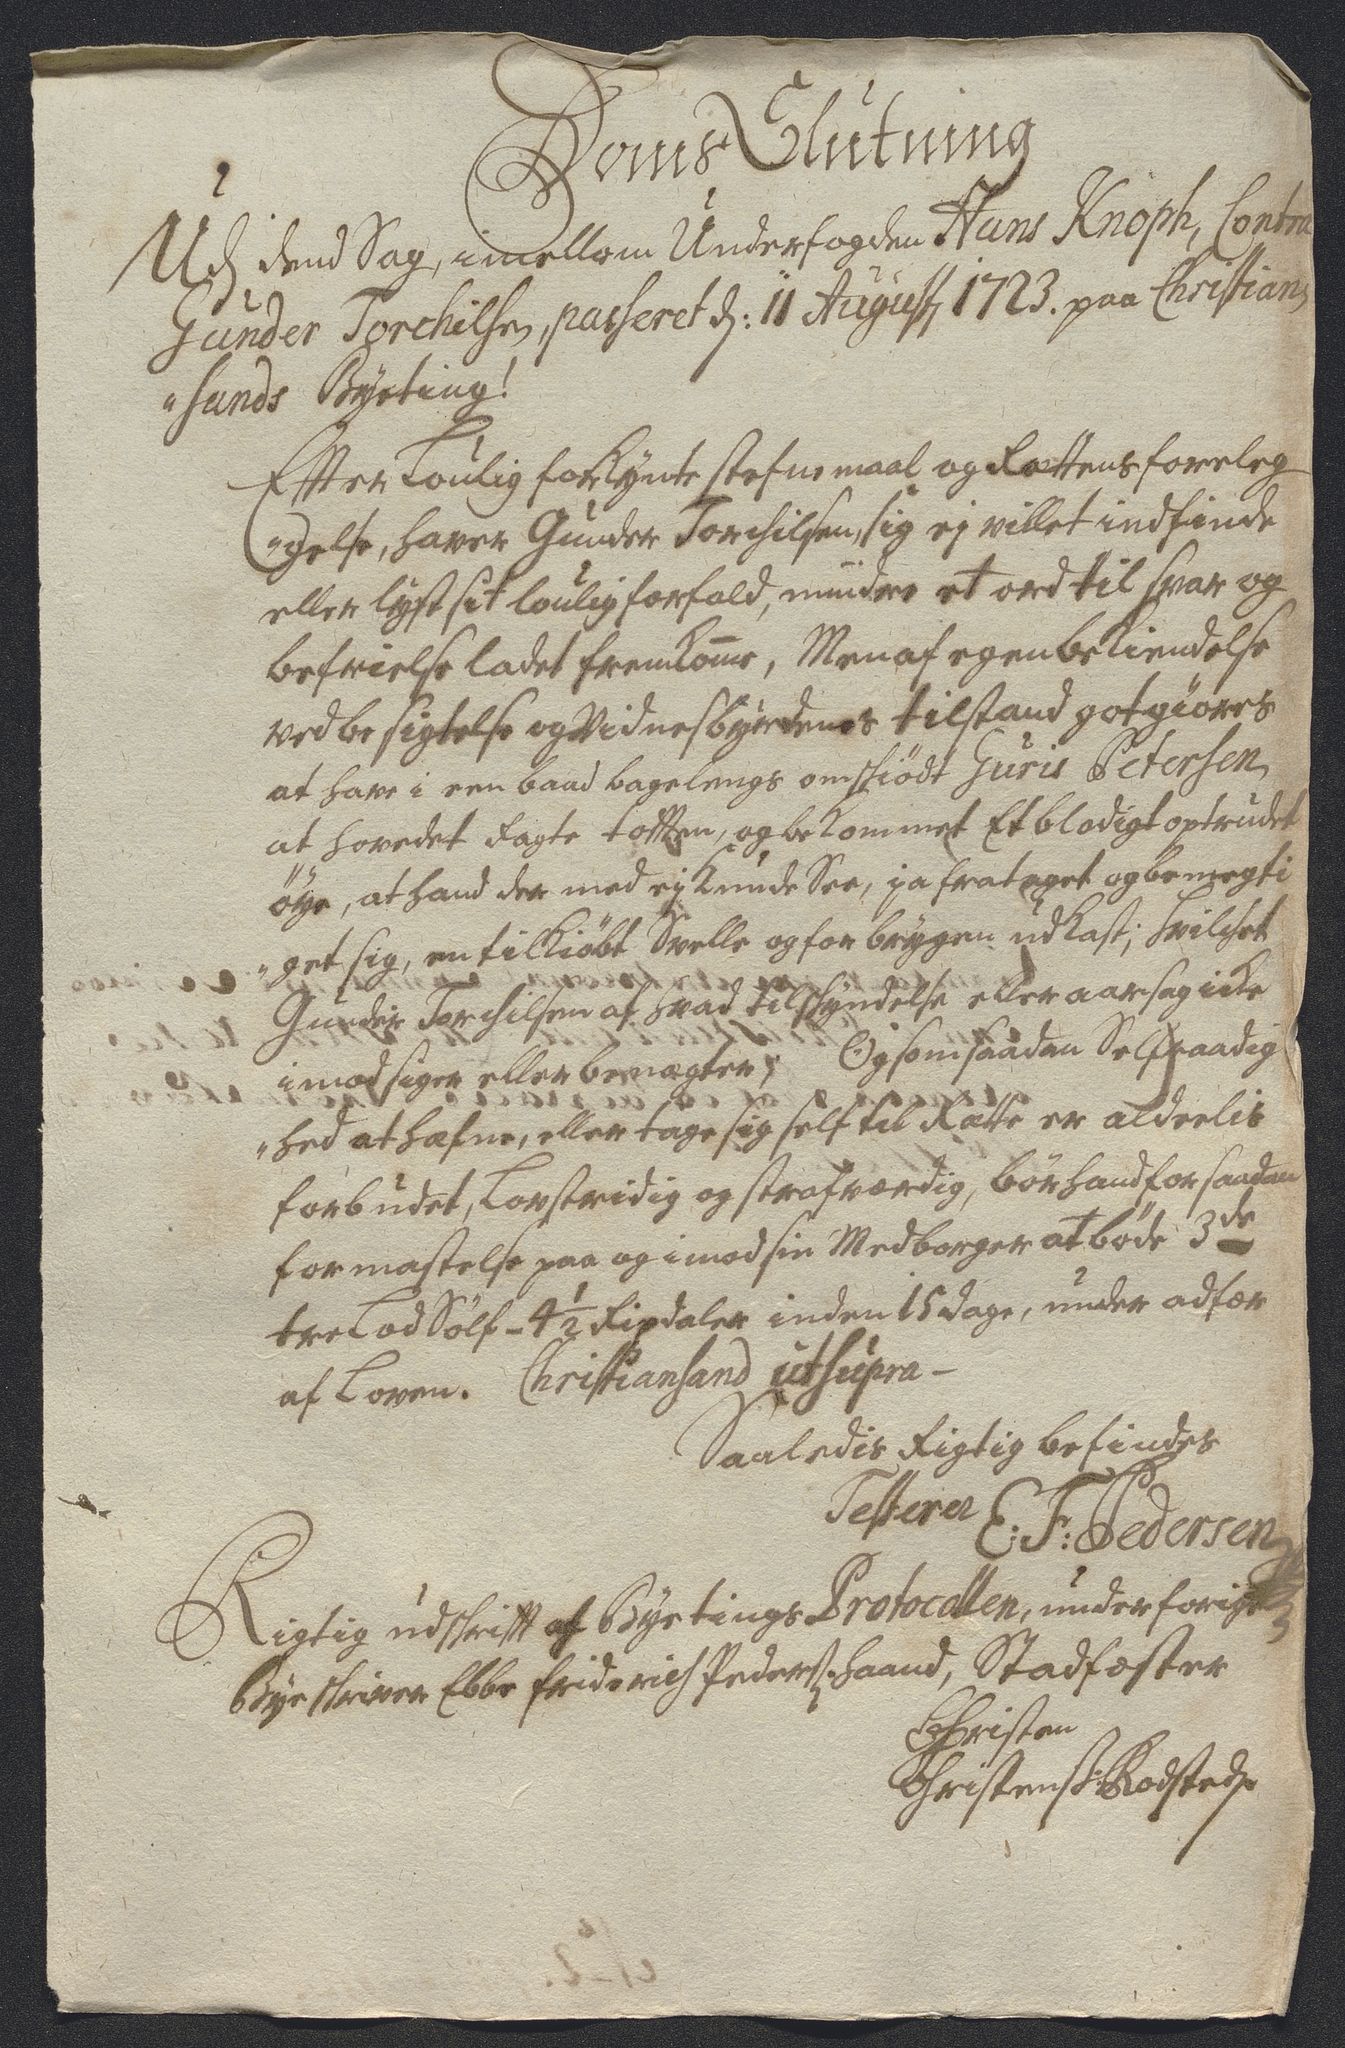 Doms Slutning
Udj dend Sag, imellom Underfogden Hans Knoph, Contra
Gunder Torchilsen, passeret dj: 11 Augustj 1723. paa Christian,,
"sands Byeting!
Effter Loulig forkynte stefnemaal og Rættens foreleg-
"gelse, haver Gunder Torchilsen, sig ej villet indfinde
eller lyst sit loulig forfald, mindre et ord til svar og
befrielse ladet fremkome, Men af egen bekiendelse
ved besigtelse og Vidnesbyrdenes tilstand got giöres
at have i een baad bagelengs omstiödt Guris Petersen,
at hovedet Ragte tofften, og bekommet Et blodigt optrudet
öye, at hand der med ej kunde See, ja frataget og bemegti
"get sig, en tilkiöbt Svelle og for brygen udkast; hvilchet
Gunder Torchilsen af hvad tilskyndelse eller aarsag icke
imodsiger eller benægter; Og som saadan Selfraadig
"hed at hæfne, eller tage sig self til Rætte er aldeelis
forbudet, Lovstridig og strafværdig, bör hand for saadan
formastelse paa og imod sin Medborger at böde 3de
tre Lod Sölf - 4½ Rixdaler inden 15 dage, under adfær
af Loven. Christiansand ut supra -
Saaledis Rigtig befindes
Testerer E: F: Pedersen
Rigtig udskrifft af Byetings Protocollen, under forige
Byeskriver Ebbe Friderich Peders: haand, Stadfæster
Christen
Christenss: Rodsted